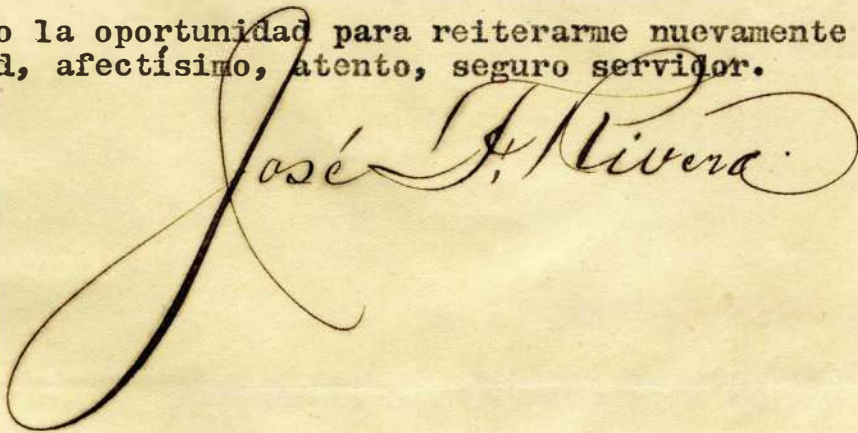 o la oportunidad para reiterarme nuevamente
d, afectísimo, atento, seguro servidor.
José F. Rivera.